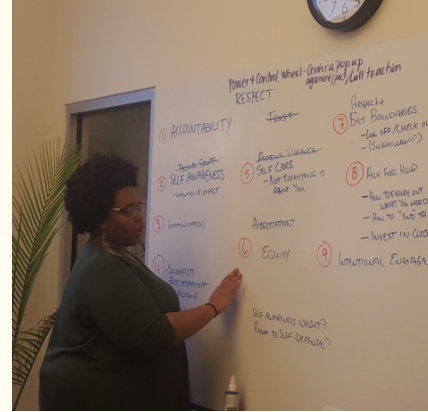 Power + Control Wheel - Center a pop up
argument/pact/call to action
RESPECT
① ACCOUNTABILITY
② SELF AWARENESS
③
④ SOLIDARITY
TRUST
⑤ SELF CARE
- NOT EVERYTHING IS
ABOUT YOU
⑥ EQUITY
SELF AWARENESS
RIGHT TO SELF-DEFENSE?
Respect
⑦ SET BOUNDARIES
- LOG OFF / CHECK OU
⑧ ASK FOR HELP
- HOW TO FIGURE OUT
WHAT YOU NEED
- HOW TO "END" TH
- INVEST IN CLOS
⑨ INTENTIONAL ENGAGE